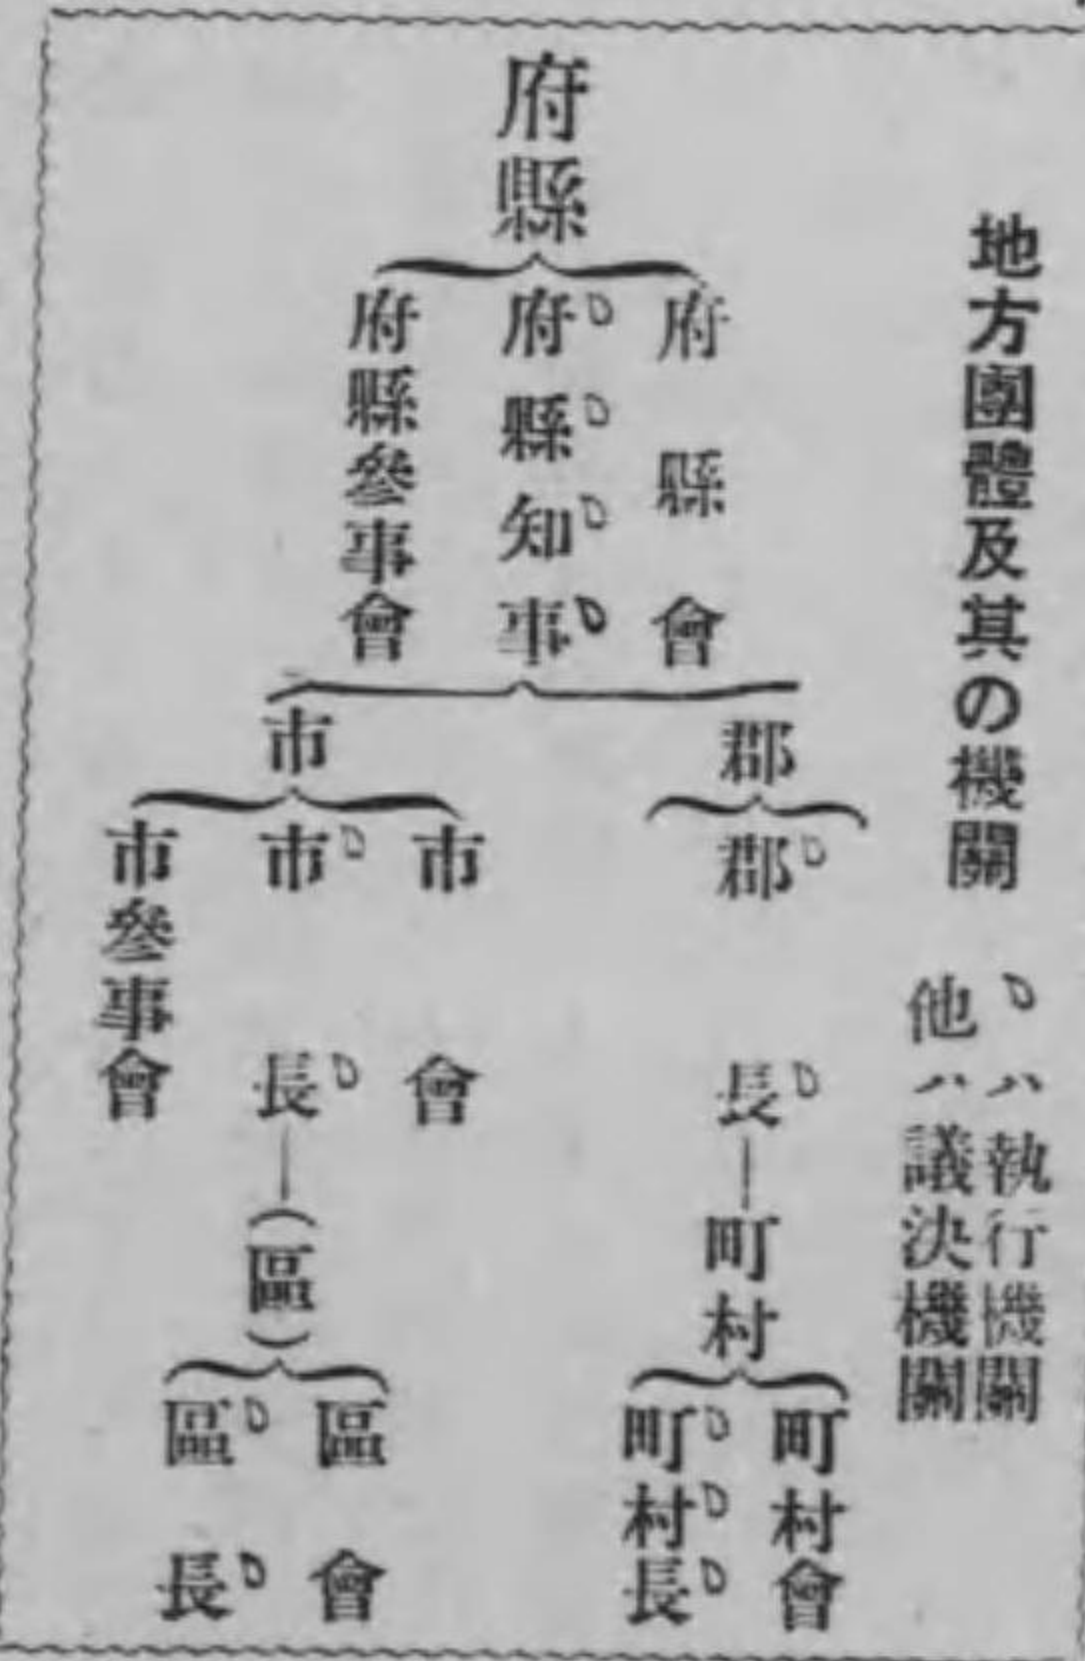 地方團體及其の機關
ハ執行機關
他ハ議決機關
府縣
府縣會
府縣知事
府縣參事會
郡
郡長
町村
町村會
町村長
市
市會
市長
市參事會
(區)
區會
區長